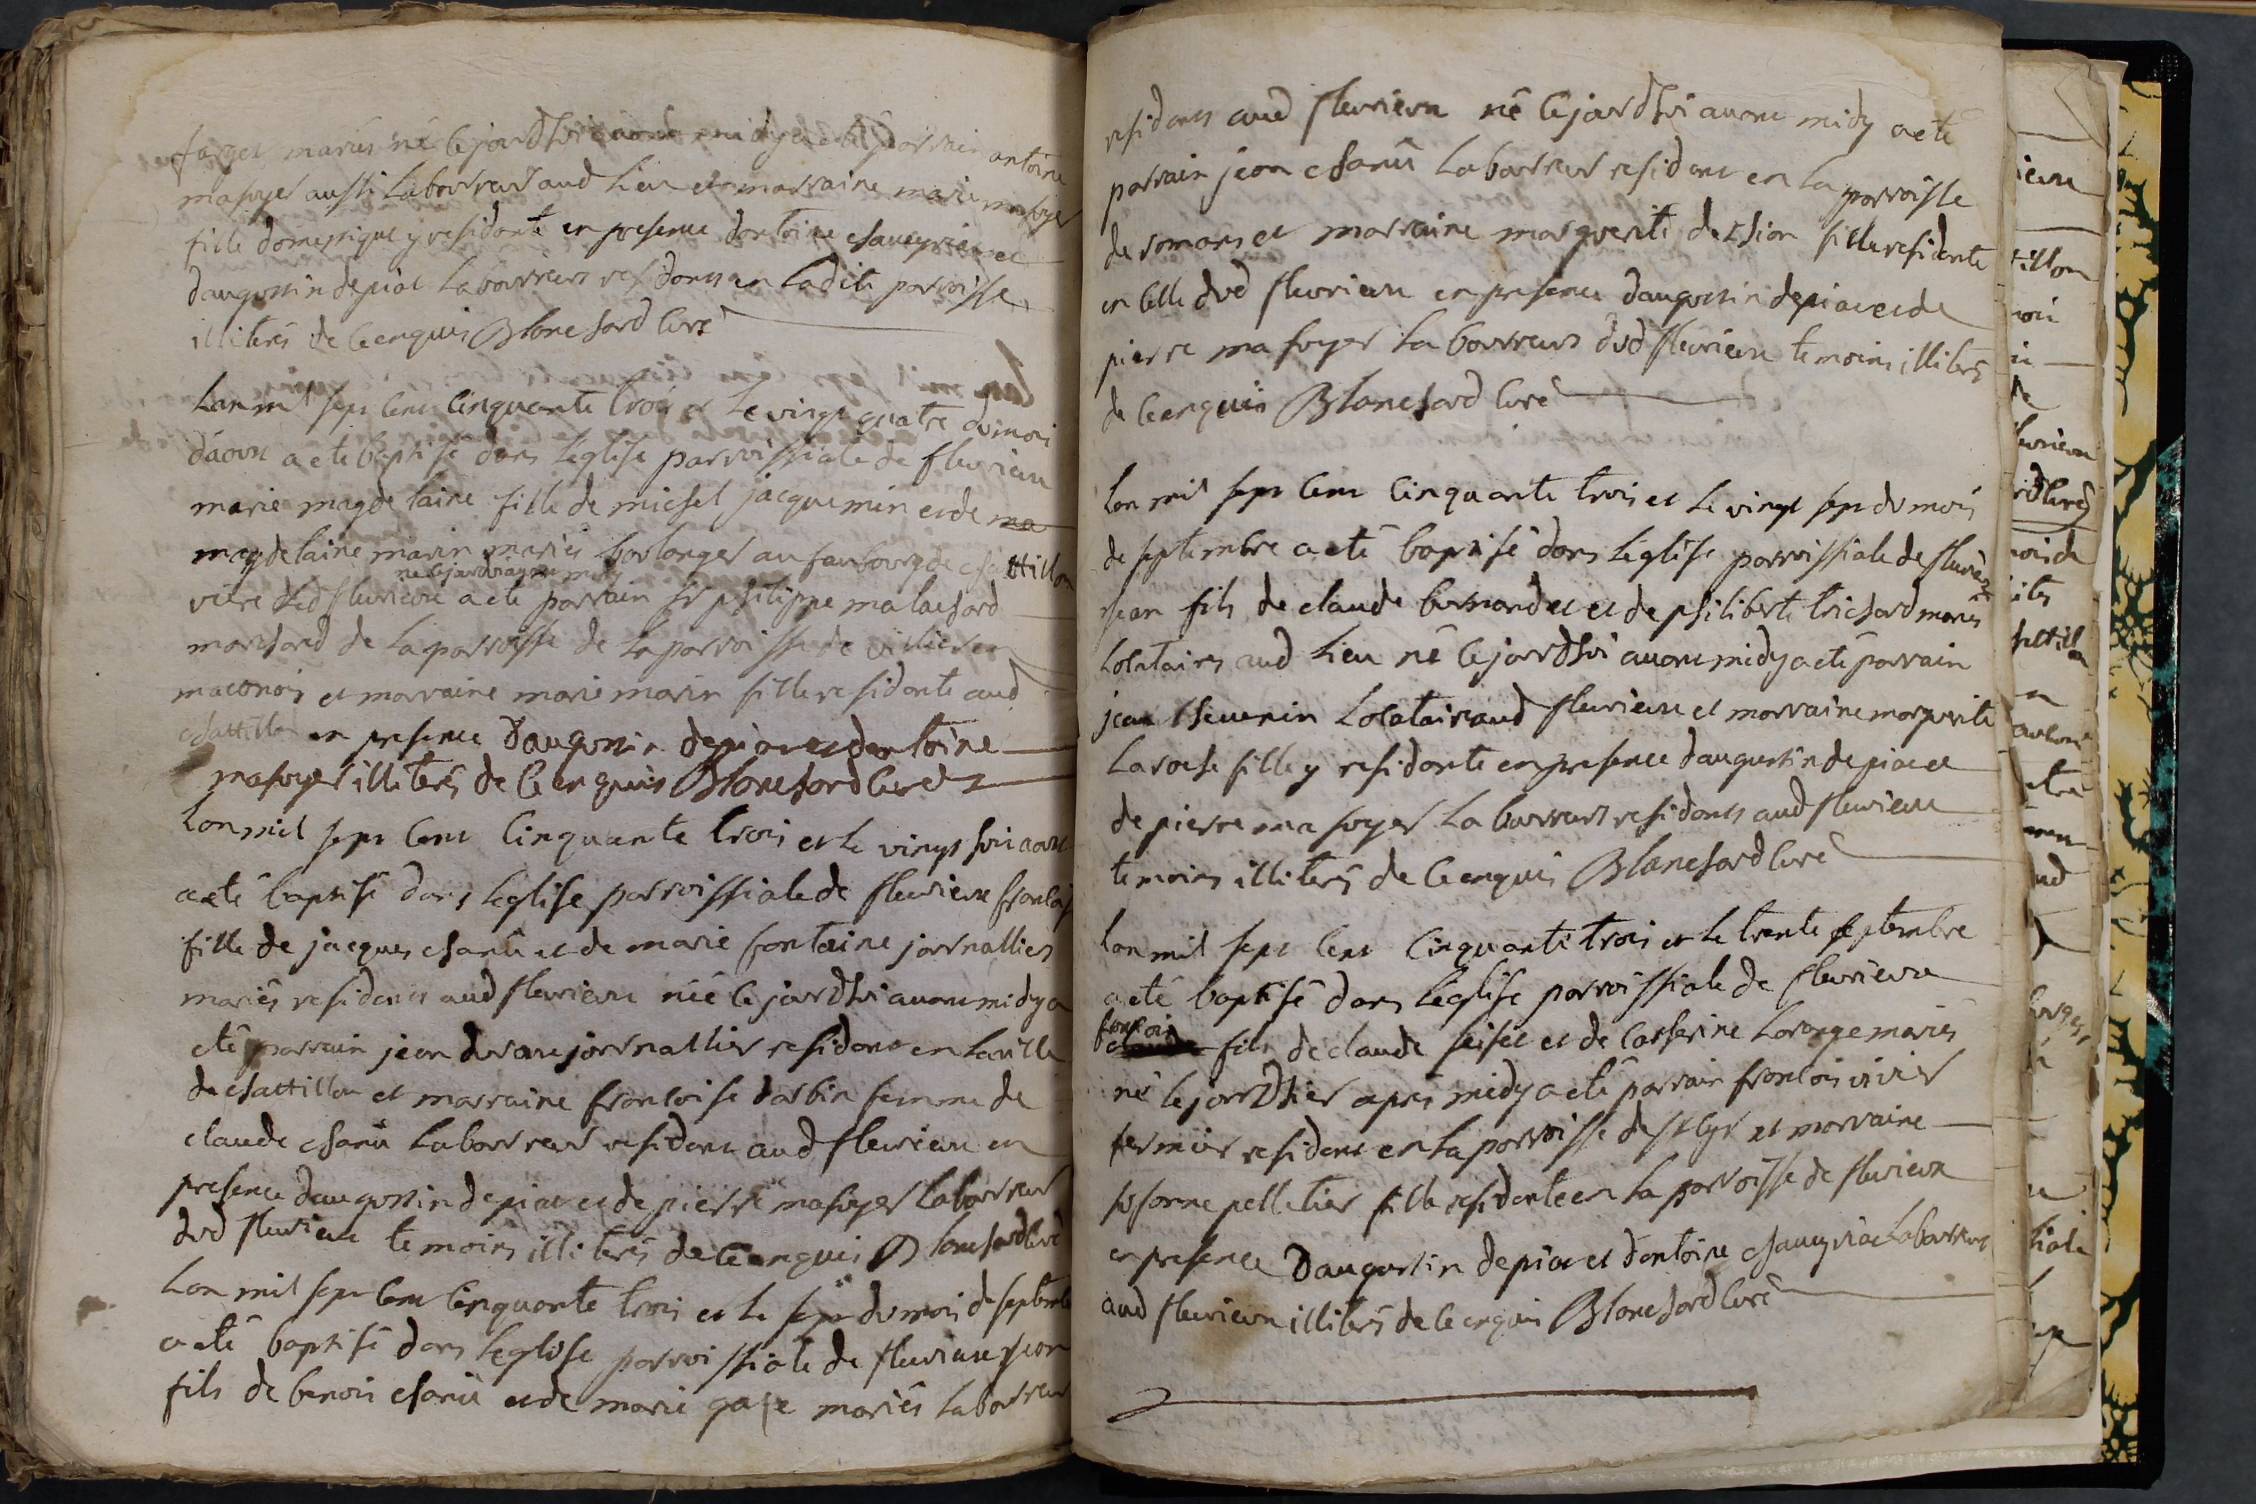 farges mariés né le jourdhui avant midy a eté parrain antoine
mafoyer aussi laboureur aud lieu et marraine marie mafoyer
fille domestique y residante en presence dantoine chauvyriac et
daugustin depiat laboureurs residents en ladite parroisse
illiterés de ce enquis Blanchard curé
Lan mil sept cent cinquante trois et le vingt quatre du moi
daout a eté baptisé dans leglise parroissiale de fleurieux
marie magdelaine fille de michel jacquemin et de ma
magdelaine marin mariés boulanger au faubourg de chattillon
née le jourdhui avant midy
vicre dud fleurieux a eté parrain sr philippe malachard
marchard de la parroisse de la parroisse de villie en
maconois et marraine marie marin fille residante aud
chattillon en presence daugustin depiat et dantoine
mafoyer illiterés de ce enquis Blanchard curé
Lan mil sept cent cinquante trois et le vingt huit aout
a eté baptisé dans leglise parroissiale de fleurieux francoise
fille de jacques chanu et de marie fontaine journalliers
mariés residents aud fleurieux née le jourdhui avant midy a
eté parrain jean durane journallier resident en la ville
de chattillon et marraine francoise darbin femme de
claude chanu laboureur resident aud fleurieux en
presence daugustin depiat et de pierre mafoyer laboureur
dud fleurieux temoins illiterés de ce enquis Blanchard curé
Lan mil sept cent cinquante trois et le sept du moi de septembre
a eté baptisé dans leglise parroissiale de fleurieux jean
fils de benois chanu et de marie gaje mariés laboureur
residents aud fleurieux né le jourdhui avant midy a eté
parrain jean chanu laboureur resident en la parroisse
de romans et marraine marguerite dethion fille residente
en celle dud fleurieux en presence daugustin depiat et de
pierre mafoyer laboureurs dud fleurieux temoins illiterés
de ce enquis Blanchard curé
Lan mil sept cent cinquante trois et le vingt sept du mois
de septembre a eté baptisé dans leglise parroissiale de fleurieux
jean fils de claude bernardet et de philiberte trichard mariés
locataires aud lieu né le jourdhui avant midy a eté parrain
jean thevenin locatair aud fleurieux et marraine marguerite
laroche fille y residante en presence daugustin depiat et
de pierre mafoyer laboureurs residents aud fleurieux
temoins illiterés de ce enquis Blanchard curé
Lan mil sept cent cinquante trois et le trente septembre
a eté baptisé dans leglise parroissiale de fleurieux
francois
fils de claude seiset et de catherine lorange mariés
né le jourdhier apres midy a eté parrain francois vivier
fermier resident en la parroisse de st cyr et marraine
susanne pelletier fille residante en la parroisse de fleurieux
en presence daugustin depiat et dantoine chauvyriac laboureurs
aud fleurieux illiterés de ce enquis Blanchard curé